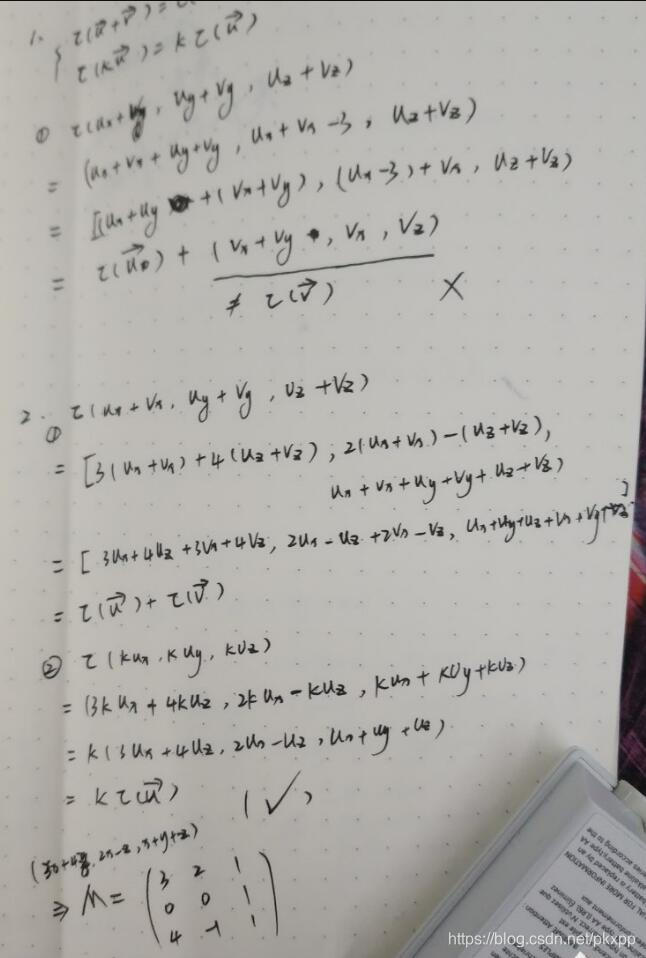 1. { τ(u⃗+v⃗) =
τ(ku⃗) = kτ(u⃗)
① τ(ux+vy, uy+vy, uz+vz)
= (ux+vx+uy+vy, ux+vx-3, uz+vz)
= [(ux+uy)+(vx+vy), (ux-3)+vx, uz+vz)
= τ(u⃗) + (vx+vy, vx, vz)
≠ τ(v⃗) ×
2. τ(ux+vx, uy+vy, uz+vz)
①
= [3(ux+vx)+4(uz+vz), 2(ux+vx)-(uz+vz),
ux+vx+uy+vy+uz+vz)
]
= [3ux+4uz+3vx+4vz, 2ux-uz+2vx-vz, ux+uy+uz+vx+vy+vz
= τ(u⃗)+τ(v⃗)
② τ(kux, kuy, kuz)
= (3kux+4kuz, 2kux-kuz, kux+kuy+kuz)
= k(3ux+4uz, 2ux-uz, ux+uy+uz)
= kτ(u⃗) (✓)
(3x+4z, 2x-z, x+y+z)
⇒ M = (3 2 1
0 0 1
4 -1 1)
FOR MORE INFORMATION
https://blog.csdn.net/pkxpp